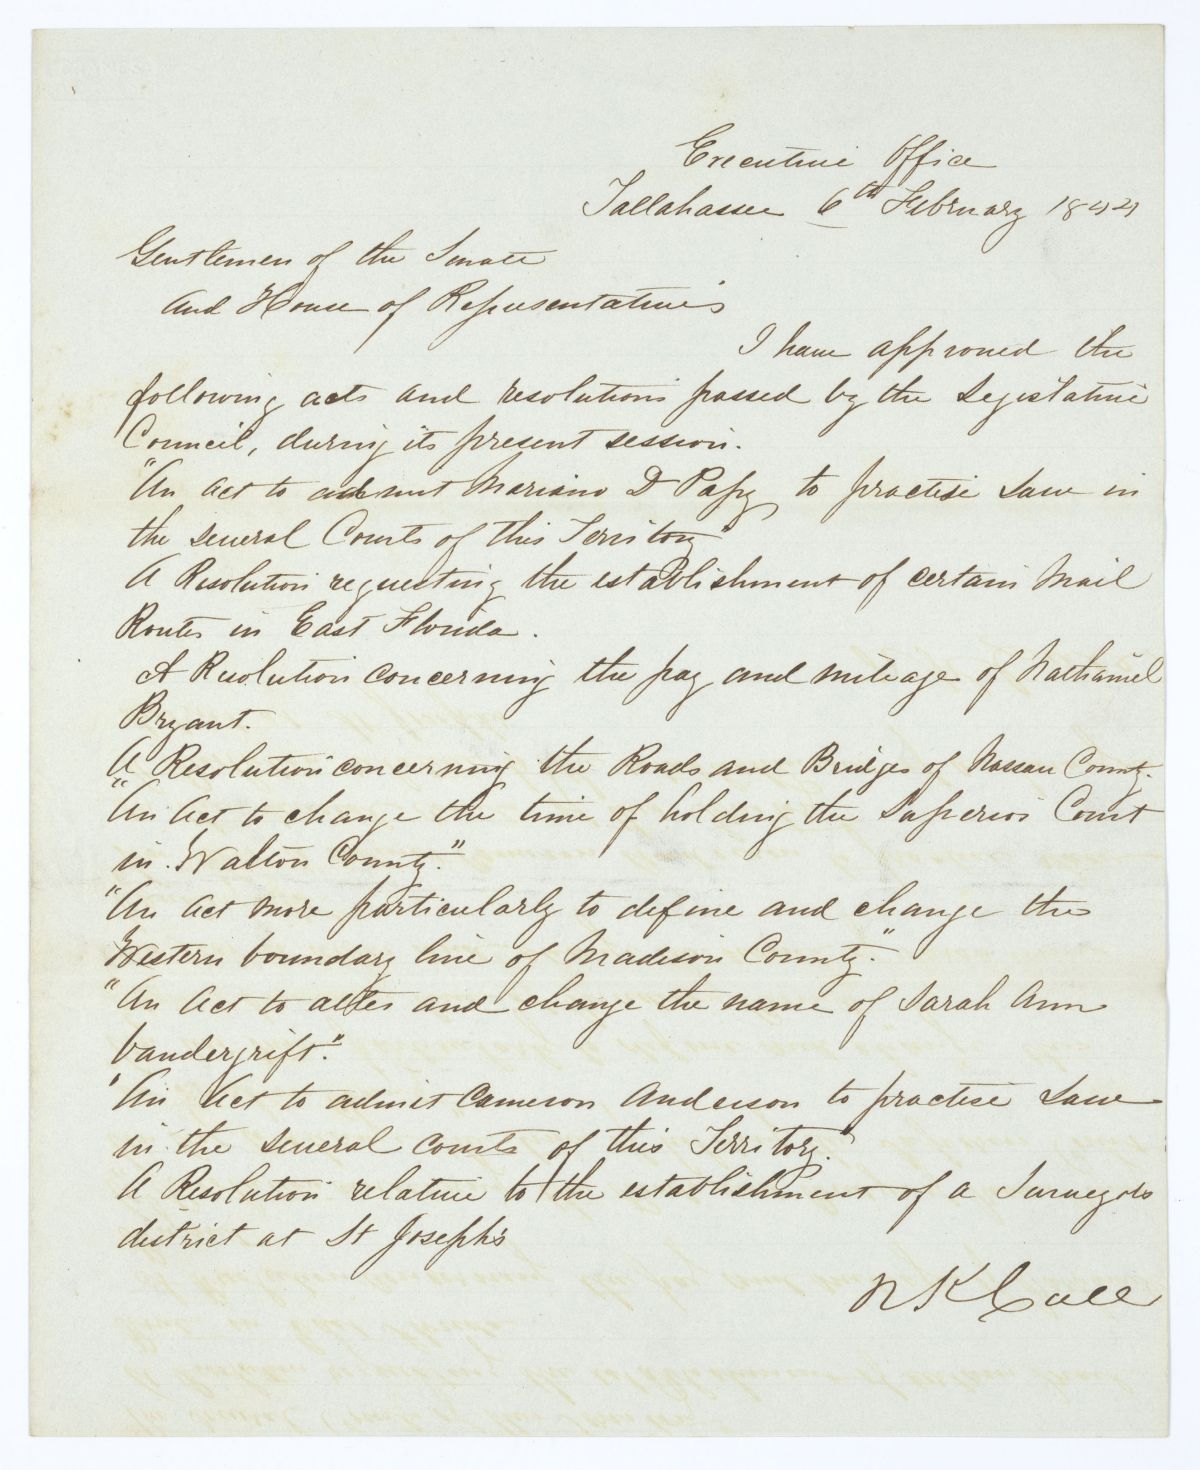 Executive Office
Tallahassee 6th February 1844
Gentlemen of the Senate
and House of Representatives
I have approved the
following acts and resolutions passed by the Legislative
Council, during its present session.
"An Act to admit Mariano D Papy to practise Law in
the several Courts of this Territory"
A Resolution requesting the establishment of certain Mail
Routes in East Florida.
A Resolution concerning the pay and mileage of Nathaniel
Bryant.
A Resolution concerning the Roads and Bridges of Nassau County.
"An Act to change the time of holding the Superior Court
in Walton County."
"An Act more particularly to define and change the
Western boundary line of Madison County."
"An Act to alter and change the name of Sarah Ann
Vandergrift."
"An Act to admit Cameron Anderson to practise Law
in the several courts of this Territory."
A Resolution relative to the establishment of a Surveyors
district at St Josephs
R K Call